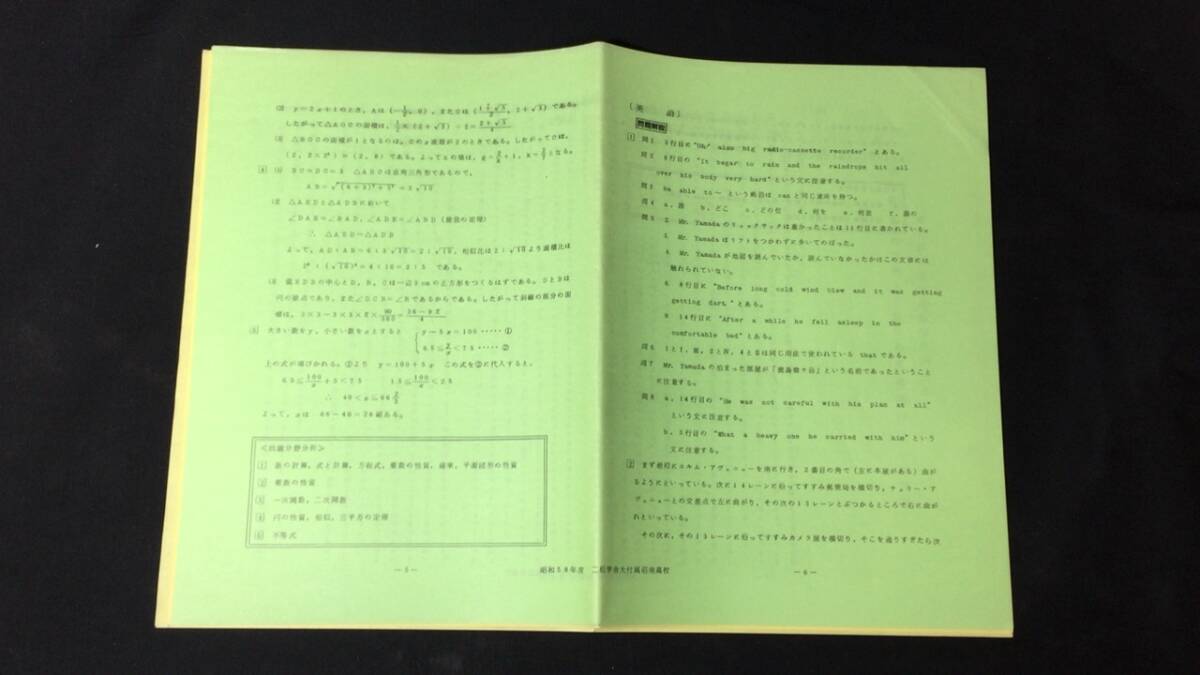 (2) y=2x+1のとき,Aは(-1/2, 0),またCは(     , 2+√3)である。
したがって△AOCの面積は,
(3) △BOCの面積が1となるのは,Cのx座標が2のときである。したがってCは,
(2, 2×2²)=(2, 8)である。よって
4 (1) BC=DC=3 △ABCは直角三角形であるので,
AB=√(6+3)²+3²=3√10
(2) △AEDと△ADBにおいて
∠DAE=∠BAD,∠ADE=∠ABD(接弦の定理)
∴ △AED∽△ADB
よって,AD:AB=6:3√10=2:√10,相似比は2:√10より面積比は
2²:(√10)²=4:10=2:5 である。
(3) 弧EDBの中心とD,B,Cは一辺3cmの正方形をつくるはずである。DとBは
円の接点であり,また∠DCB=∠Rであるからである。したがって斜線の部分の面
積は,3×3-3×3×π×90/360=(36-9π)/4
5 大きい数をy,小さい数をxとすると
y-5x=100 ‥‥‥ ①
6.5≦y/x<7.5 ‥‥‥ ②
上の式が導びかれる。①より y=100+5x この式を②に代入すると,
6.5≦100/x+5<7.5  1.5≦100/x<2.5
∴ 40<x≦66 2/3
よって,xは 66-40=26組ある。
<出題分野分析>
1 数の計算,式と計算,方程式,整数の性質,確率,平面図形の性質
2 整数の性質
3 一次関数,二次関数
4 円の性質,相似,三平方の定理
5 不等式
- 5 -
昭和58年度 二松学舎大付属沼南高校
(英 語)
問題解説
1 問1 3行目に"Oh! also big radio-cassette recorder"とある。
問2 6行目の"It began to rain and the raindrops hit all
over his body very hard"という文に注意する。
問3 be able to~という熟語はcanと同じ意味を持つ。
問4 a.誰 b.どこ c.どの位 d.何を e.何故 f.誰の
問5 2. Mr. Yamadaのリュックサックは重かったことは11行目に書かれている。
3. Mr. Yamadaはリフトをつかわずに歩いてのぼった。
4. Mr. Yamadaが地図を読んでいたか,読んでいなかったかはこの文章には
触れられていない。
6. 8行目に"Before long cold wind blew and it was getting
getting dark."とある。
9. 14行目に"After a while he fell asleep in the
comfortable bed"とある。
問6 1と7,
問7 Mr. Yamadaの泊まった部屋が「
に注意する。
問8 a.14行目の"He was not careful with his plan at all"
という文に注意する。
b.3行目の"What a heavy one he carried with him"という
文に注意する。
2 まず最初にエルム・アヴェニューを南に行き,2番目の角で(左に本屋がある)曲が
るようにといっている。次に14レーンに沿ってすすみ郵便局を横切り,チェリー・ア
ヴェニューとの交差点で左に曲がり,その次の13レーンとぶつかるところで右に曲が
れといっている。
その次に,その13レーンに沿ってすすみカメラ屋を横切り,そこを通りすぎたら次
- 6 -